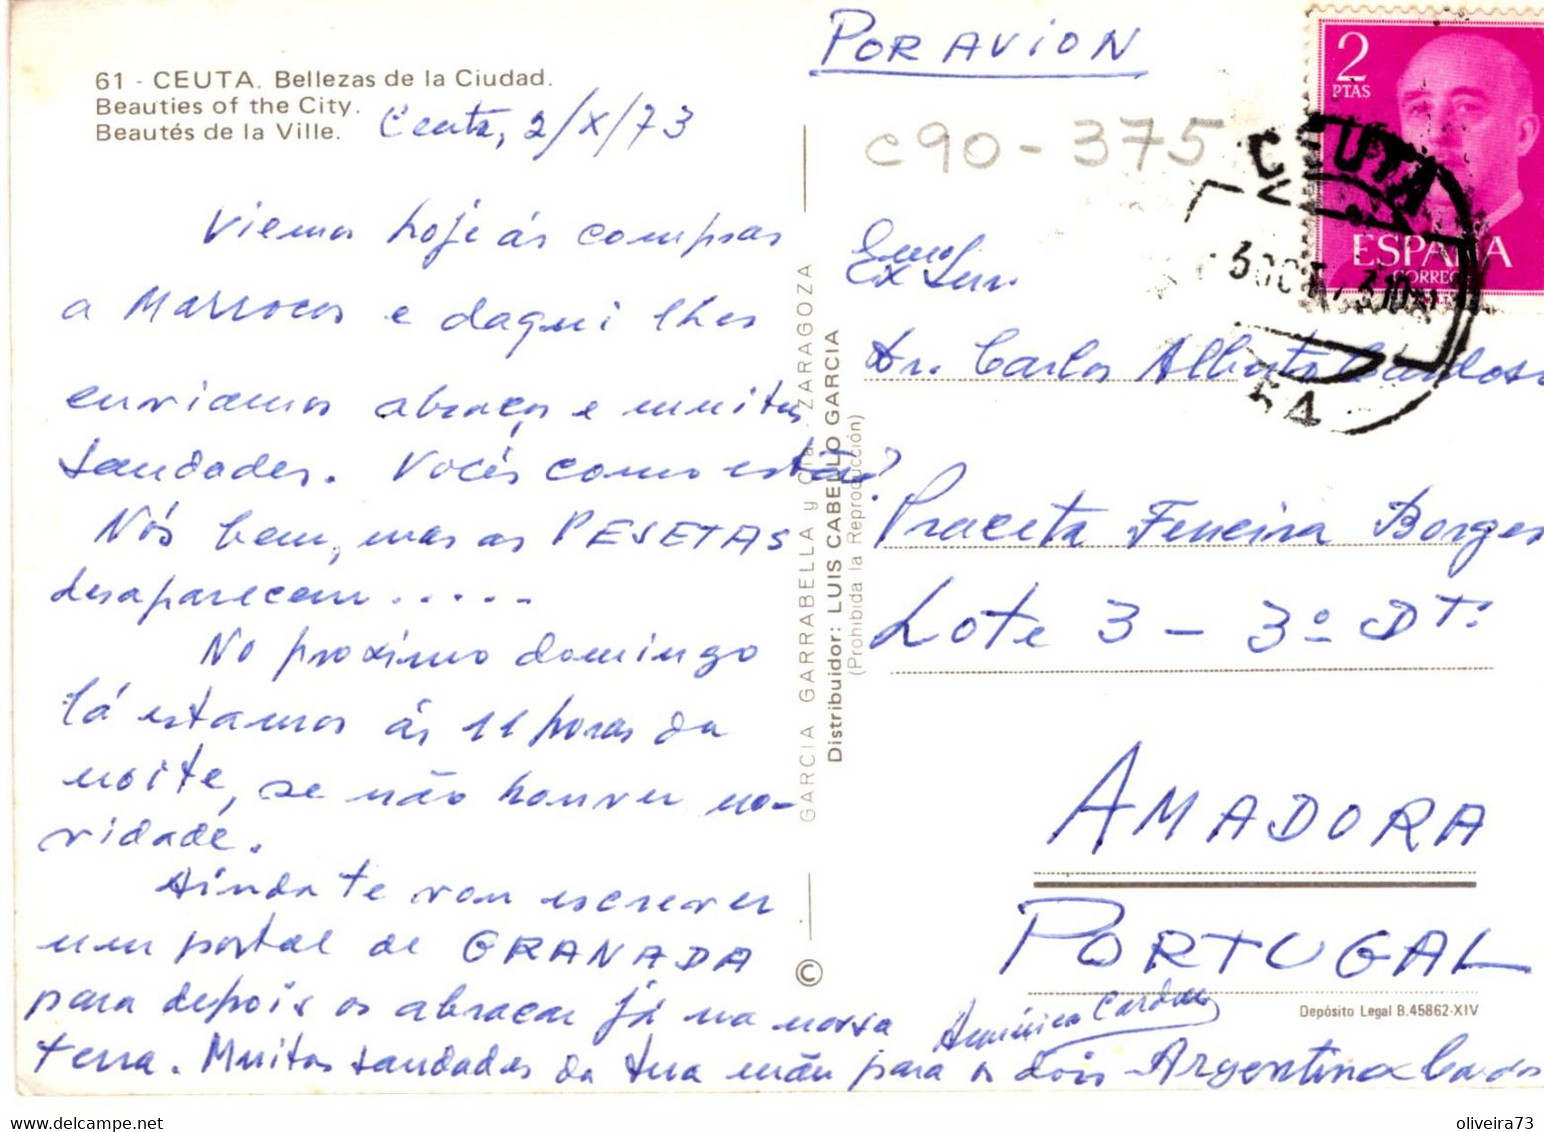 61 - CEUTA. Bellezas de la Ciudad.
Beauties of the City.
Beautés de la Ville.
Ceuta, 2/X/73
Viemos hoje às compras
a Marrocos e daqui lhes
enviamos abraços e muitas
saudades. Vocês como estão?
Nós bem, mas as PESETAS
desaparecem.....
No próximo domingo
lá estamos às 11 horas da
noite, se não houver no-
vidade.
Ainda te vou escrever
um postal de GRANADA
para depois os abraçar já na nossa
terra. Muitas saudades da tua mãe para os dois Argentina Cardos
Américo Cardoso
GARCIA GARRABELLA y Cia. - ZARAGOZA
Distribuidor: LUIS CABELLO GARCIA
(Prohibida la Reproducción)
©
POR AVION
c90-375
2
PTAS
ESPAÑA
CORREO
CEUTA
3 OCT
54
Exmo Senr.
Dr. Carlos Alberto Cardoso
Praceta Ferreira Borges
Lote 3 - 3º Dtº
AMADORA
PORTUGAL
Depósito Legal B.45862-XIV
delcampe.net
oliveira73